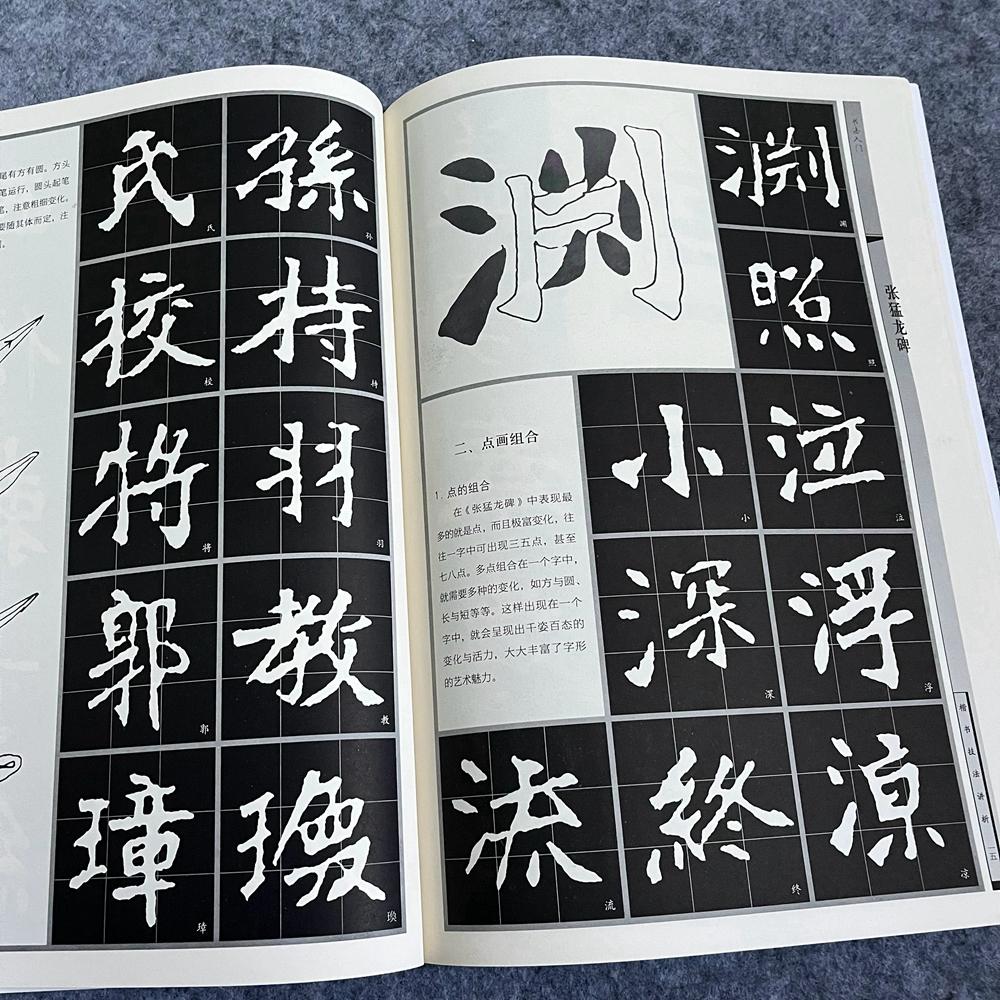 尾有方有圆。方头
笔运行，圆头起笔
笔，注意粗细变化。
要随其体而定，注
氏
氏
孫
孙
校
校
持
持
将
将
羽
羽
郭
郭
教
教
璋
璋
瓊
渊
渊
照
照
二、点画组合
1. 点的组合
在《张猛龙碑》中表现最
多的就是点，而且极富变化，往
往一字中可出现三五点，甚至
七八点。多点组合在一个字中，
就需要多种的变化，如方与圆、
长与短等等。这样出现在一个
字中，就会呈现出千姿百态的
变化与活力，大大丰富了字形
的艺术魅力。
小
小
泣
泣
深
深
浮
浮
流
流
終
终
凉
凉
书法入门
张猛龙碑
楷书技法讲析
一五